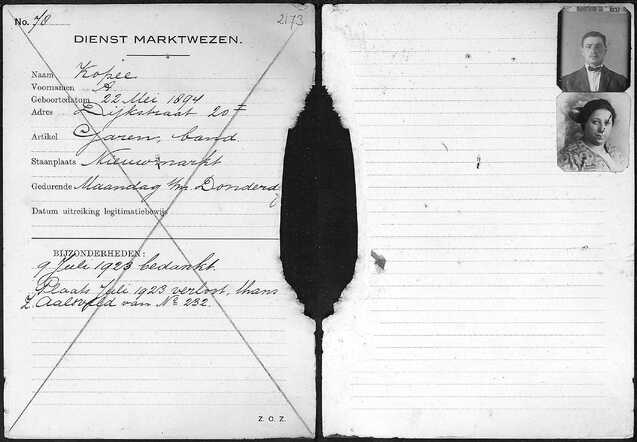 No. 78
2173
DIENST MARKTWEZEN.
Naam Kopee
Voornamen A
Geboortedatum 22 Mei 1894
Adres Dijkstraat 20
Artikel Garen, band.
Staanplaats Nieuwmarkt
Gedurende Maandag t/m Donderd
Datum uitreiking legitimatiebewijs
BIJZONDERHEDEN:
9 Juli 1923 bedankt.
Plaats Juli 1923 verlost, thans
Z. Aalsveld van No 232.
Z. O. Z.